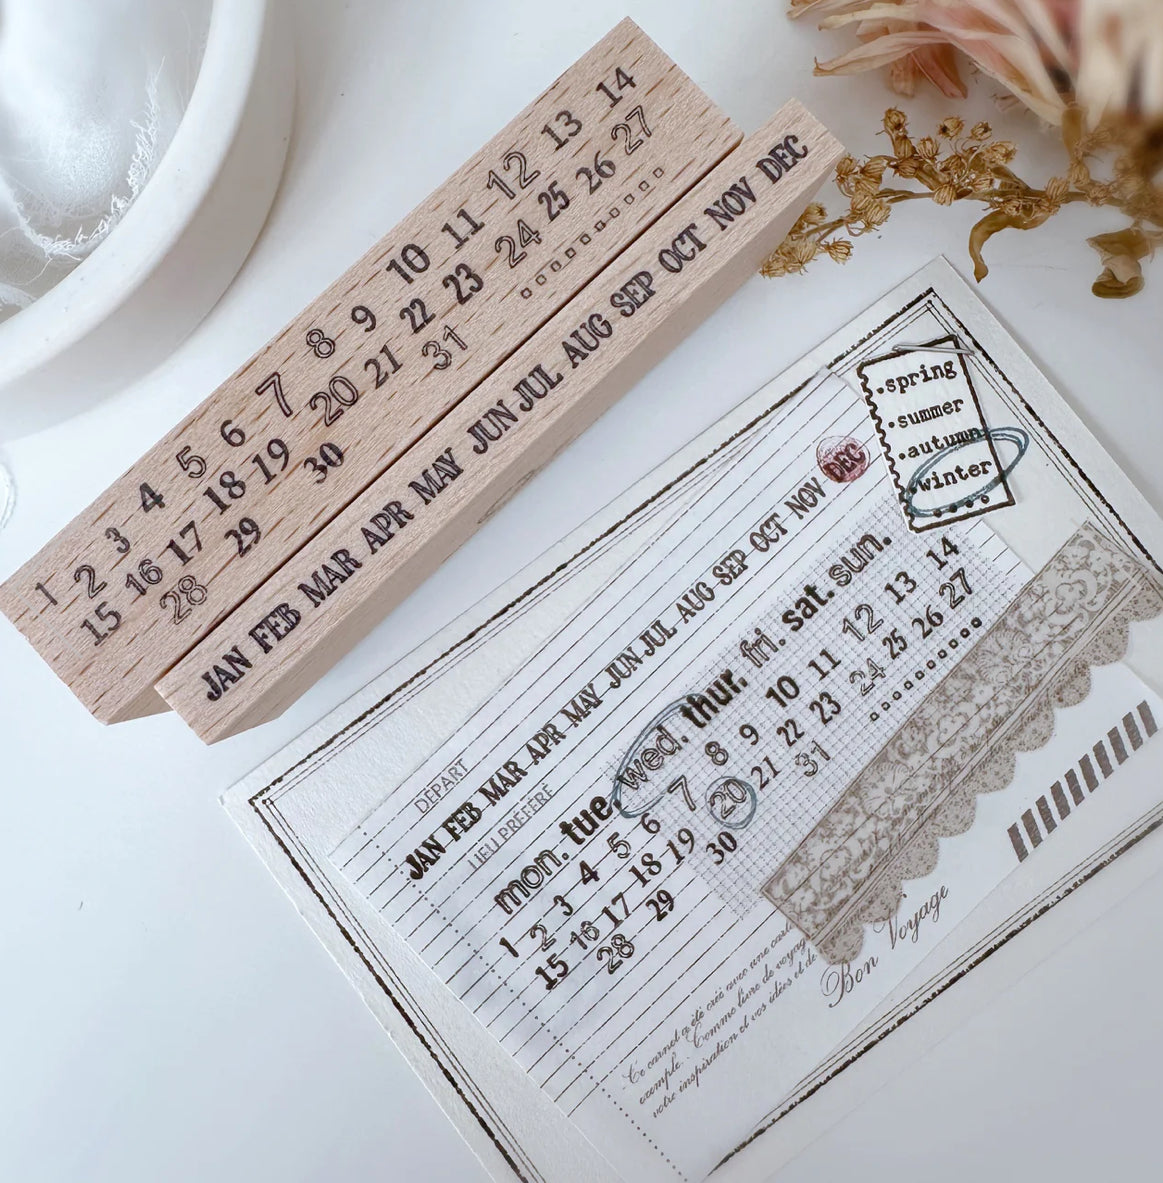 1 2 3 4 5 6 7 8 9 10 11 12 13 14
15 16 17 18 19 20 21 22 23 24 25 26 27
28 29 30 31
JAN FEB MAR APR MAY JUN JUL AUG SEP OCT NOV DEC
.spring
.summer
.autumn
winter
DÉPART
JAN FEB MAR APR MAY JUN JUL AUG SEP OCT NOV DEC
LIEU PRÉFÉRÉ
mon. tue. wed. thur. fri. sat. sun.
1 2 3 4 5 6 7 8 9 10 11 12 13 14
15 16 17 18 19 20 21 22 23 24 25 26 27
28 29 30 31
Ce carnet a été créé avec une carte
exemple. Comme livre de voyage
votre inspiration et vos idées et de
Bon Voyage